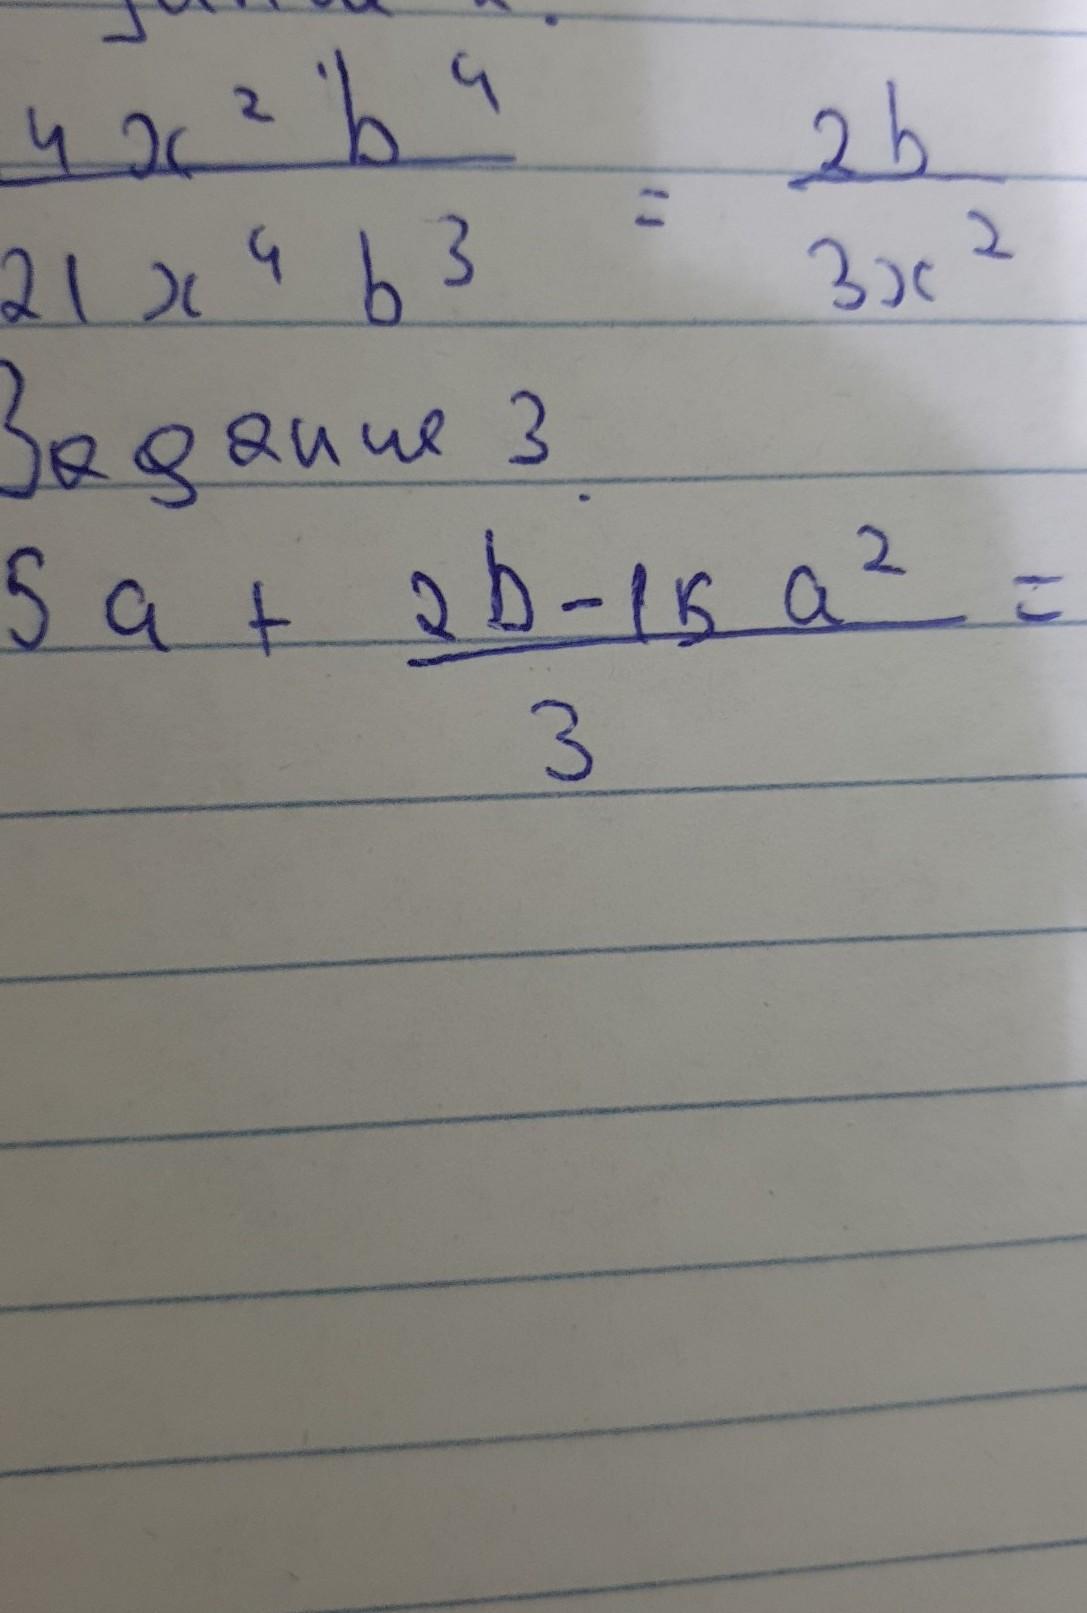 4x²b⁴ / 21x⁴b³ = 2b / 3x²
Задание 3.
5a + 2b-15a² / 3 =